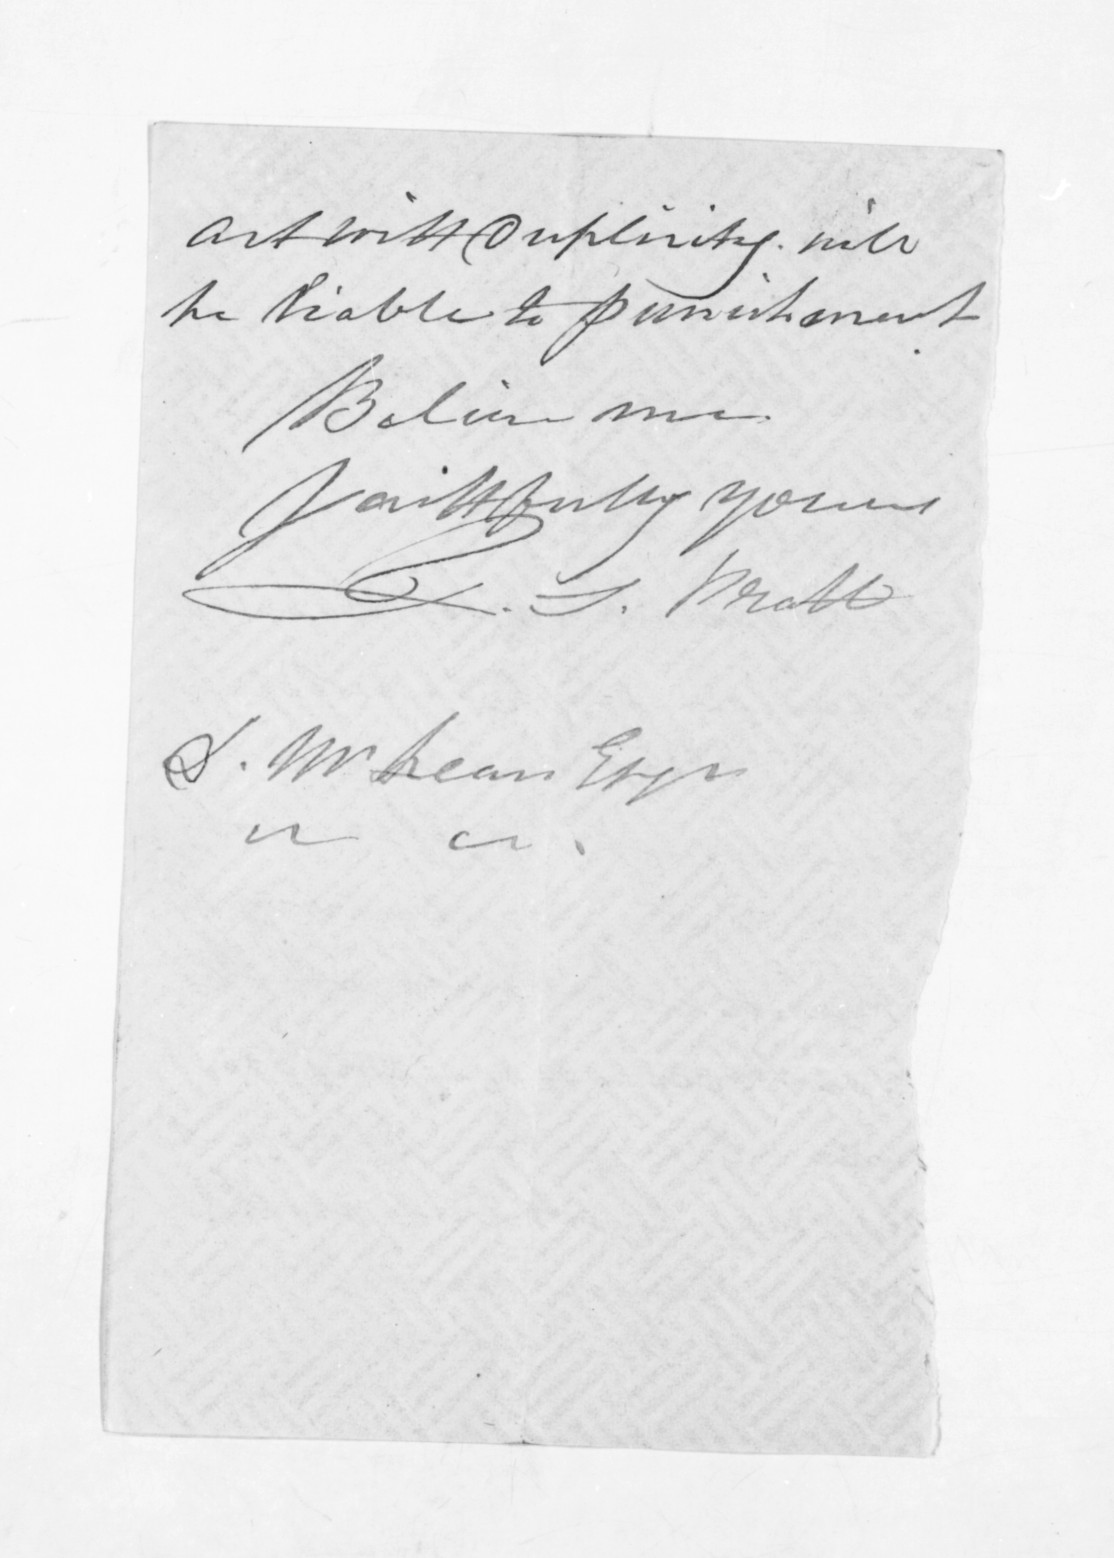 act with Duplicity. will
be liable to punishment
Believe me.
Faithfully yours
L. S. Pratt
D. McLean Esqr